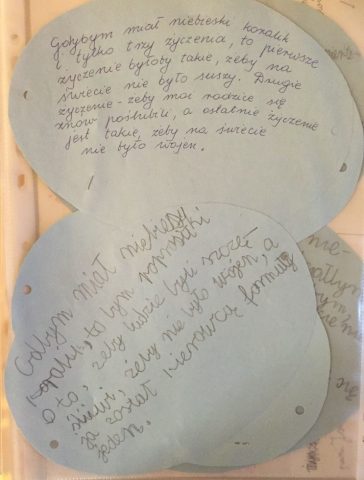 Gdybym miał niebieski koralik
i tylko trzy życzenia, to pierwsze
życzenie byłoby takie, żeby na
świecie nie było suszy. Drugie
życzenie - żeby moi rodzice się
znów poślubili, a ostatnie życzenie
jest takie, żeby na świecie
nie było wojen.
Gdbym miał niebieski
koralik, to bym poprosił
o to, żeby ludzie byli szczęś
śliwi, żeby nie było wojen, a
ja został kierowcą formuły
jeden.
nie-